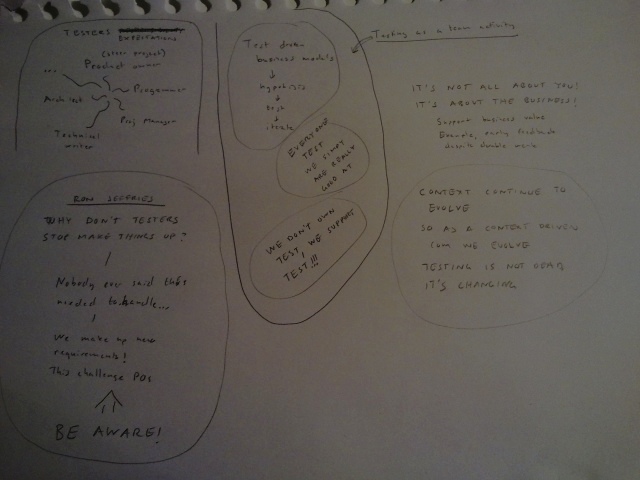 TESTERS
EXPECTATIONS
(after project)
Product owner
...
Programmer
Architect
Proj manager
Technical
writer
Test driven
business models
↓
hypothesis
↓
test
↓
iterate
EVERYONE
TEST
WE
ARE REALLY
GOOD AT
WE DON'T OWN
TEST, WE SUPPORT
TEST!!!
Testing as a team activity
IT'S NOT ALL ABOUT YOU!
IT'S ABOUT THE BUSINESS!
Support business value
Example, early feedback
double work
ROB
WHY DON'T TESTERS
STOP MAKE THINGS UP?
Nobody ever said this
needed to handle...
We make up new
requirements!
This challenge POs
BE AWARE!
CONTEXT CONTINUE TO
EVOLVE
SO AS A CONTEXT DRIVEN
COM WE EVOLVE
TESTING IS NOT DEAD
IT'S CHANGING